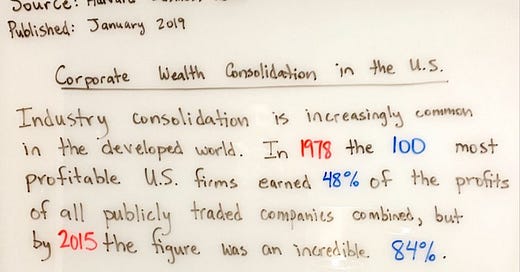 Source: Harvard
Published: January 2019
Corporate Wealth Consolidation in the U.S.
Industry consolidation is increasingly common
in the developed world. In 1978 the 100 most
profitable U.S. firms earned 48% of the profits
of all publicly traded companies combined, but
by 2015 the figure was an incredible. 84%.